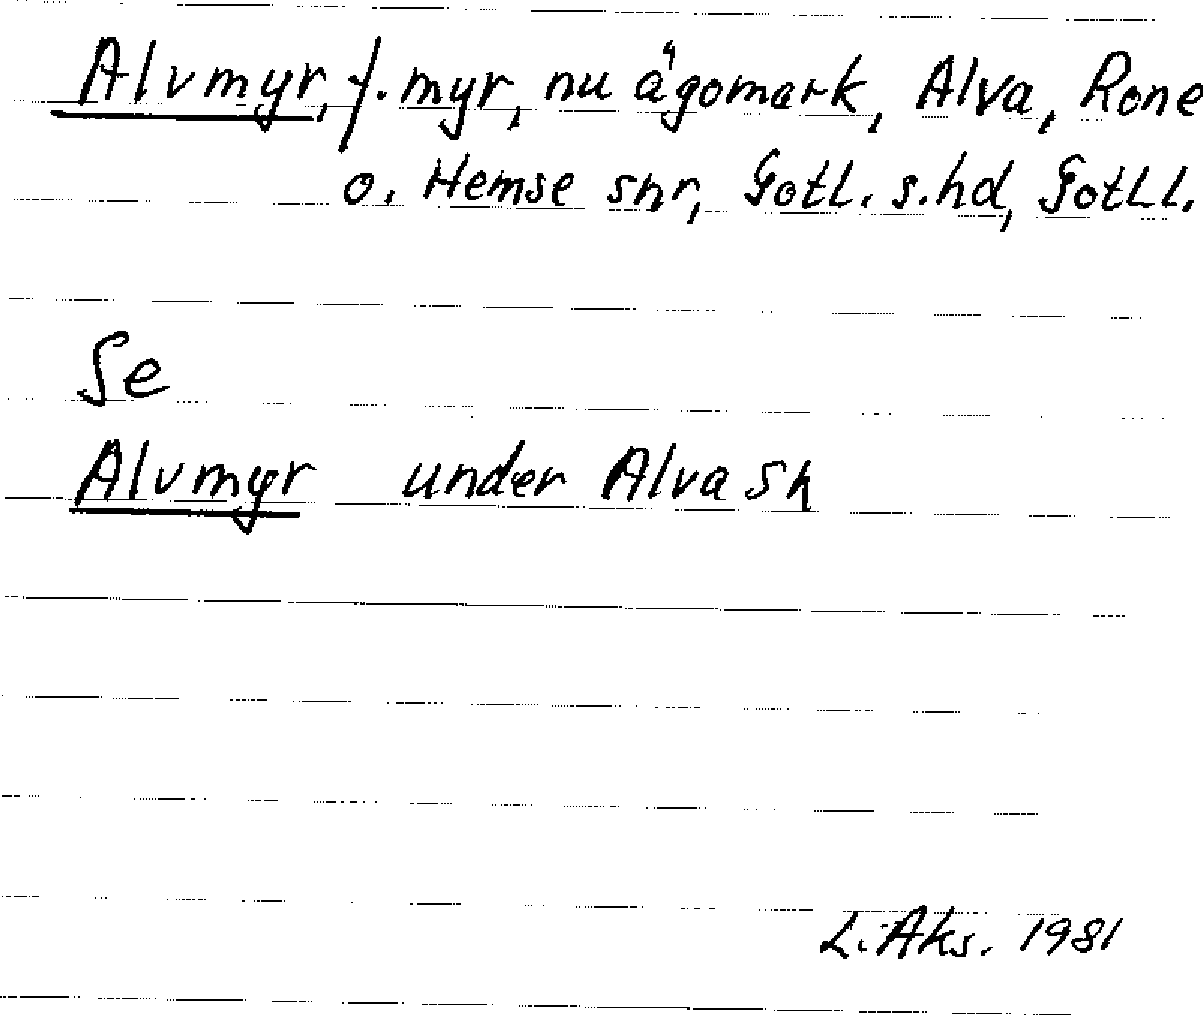 Alvmyr, f. myr, nu ägomark, Alva, Rone
o. Hemse snr, Gotl. s. hd, Gotl l.
Se
Alvmyr under Alva sn
L. Aks. 1981